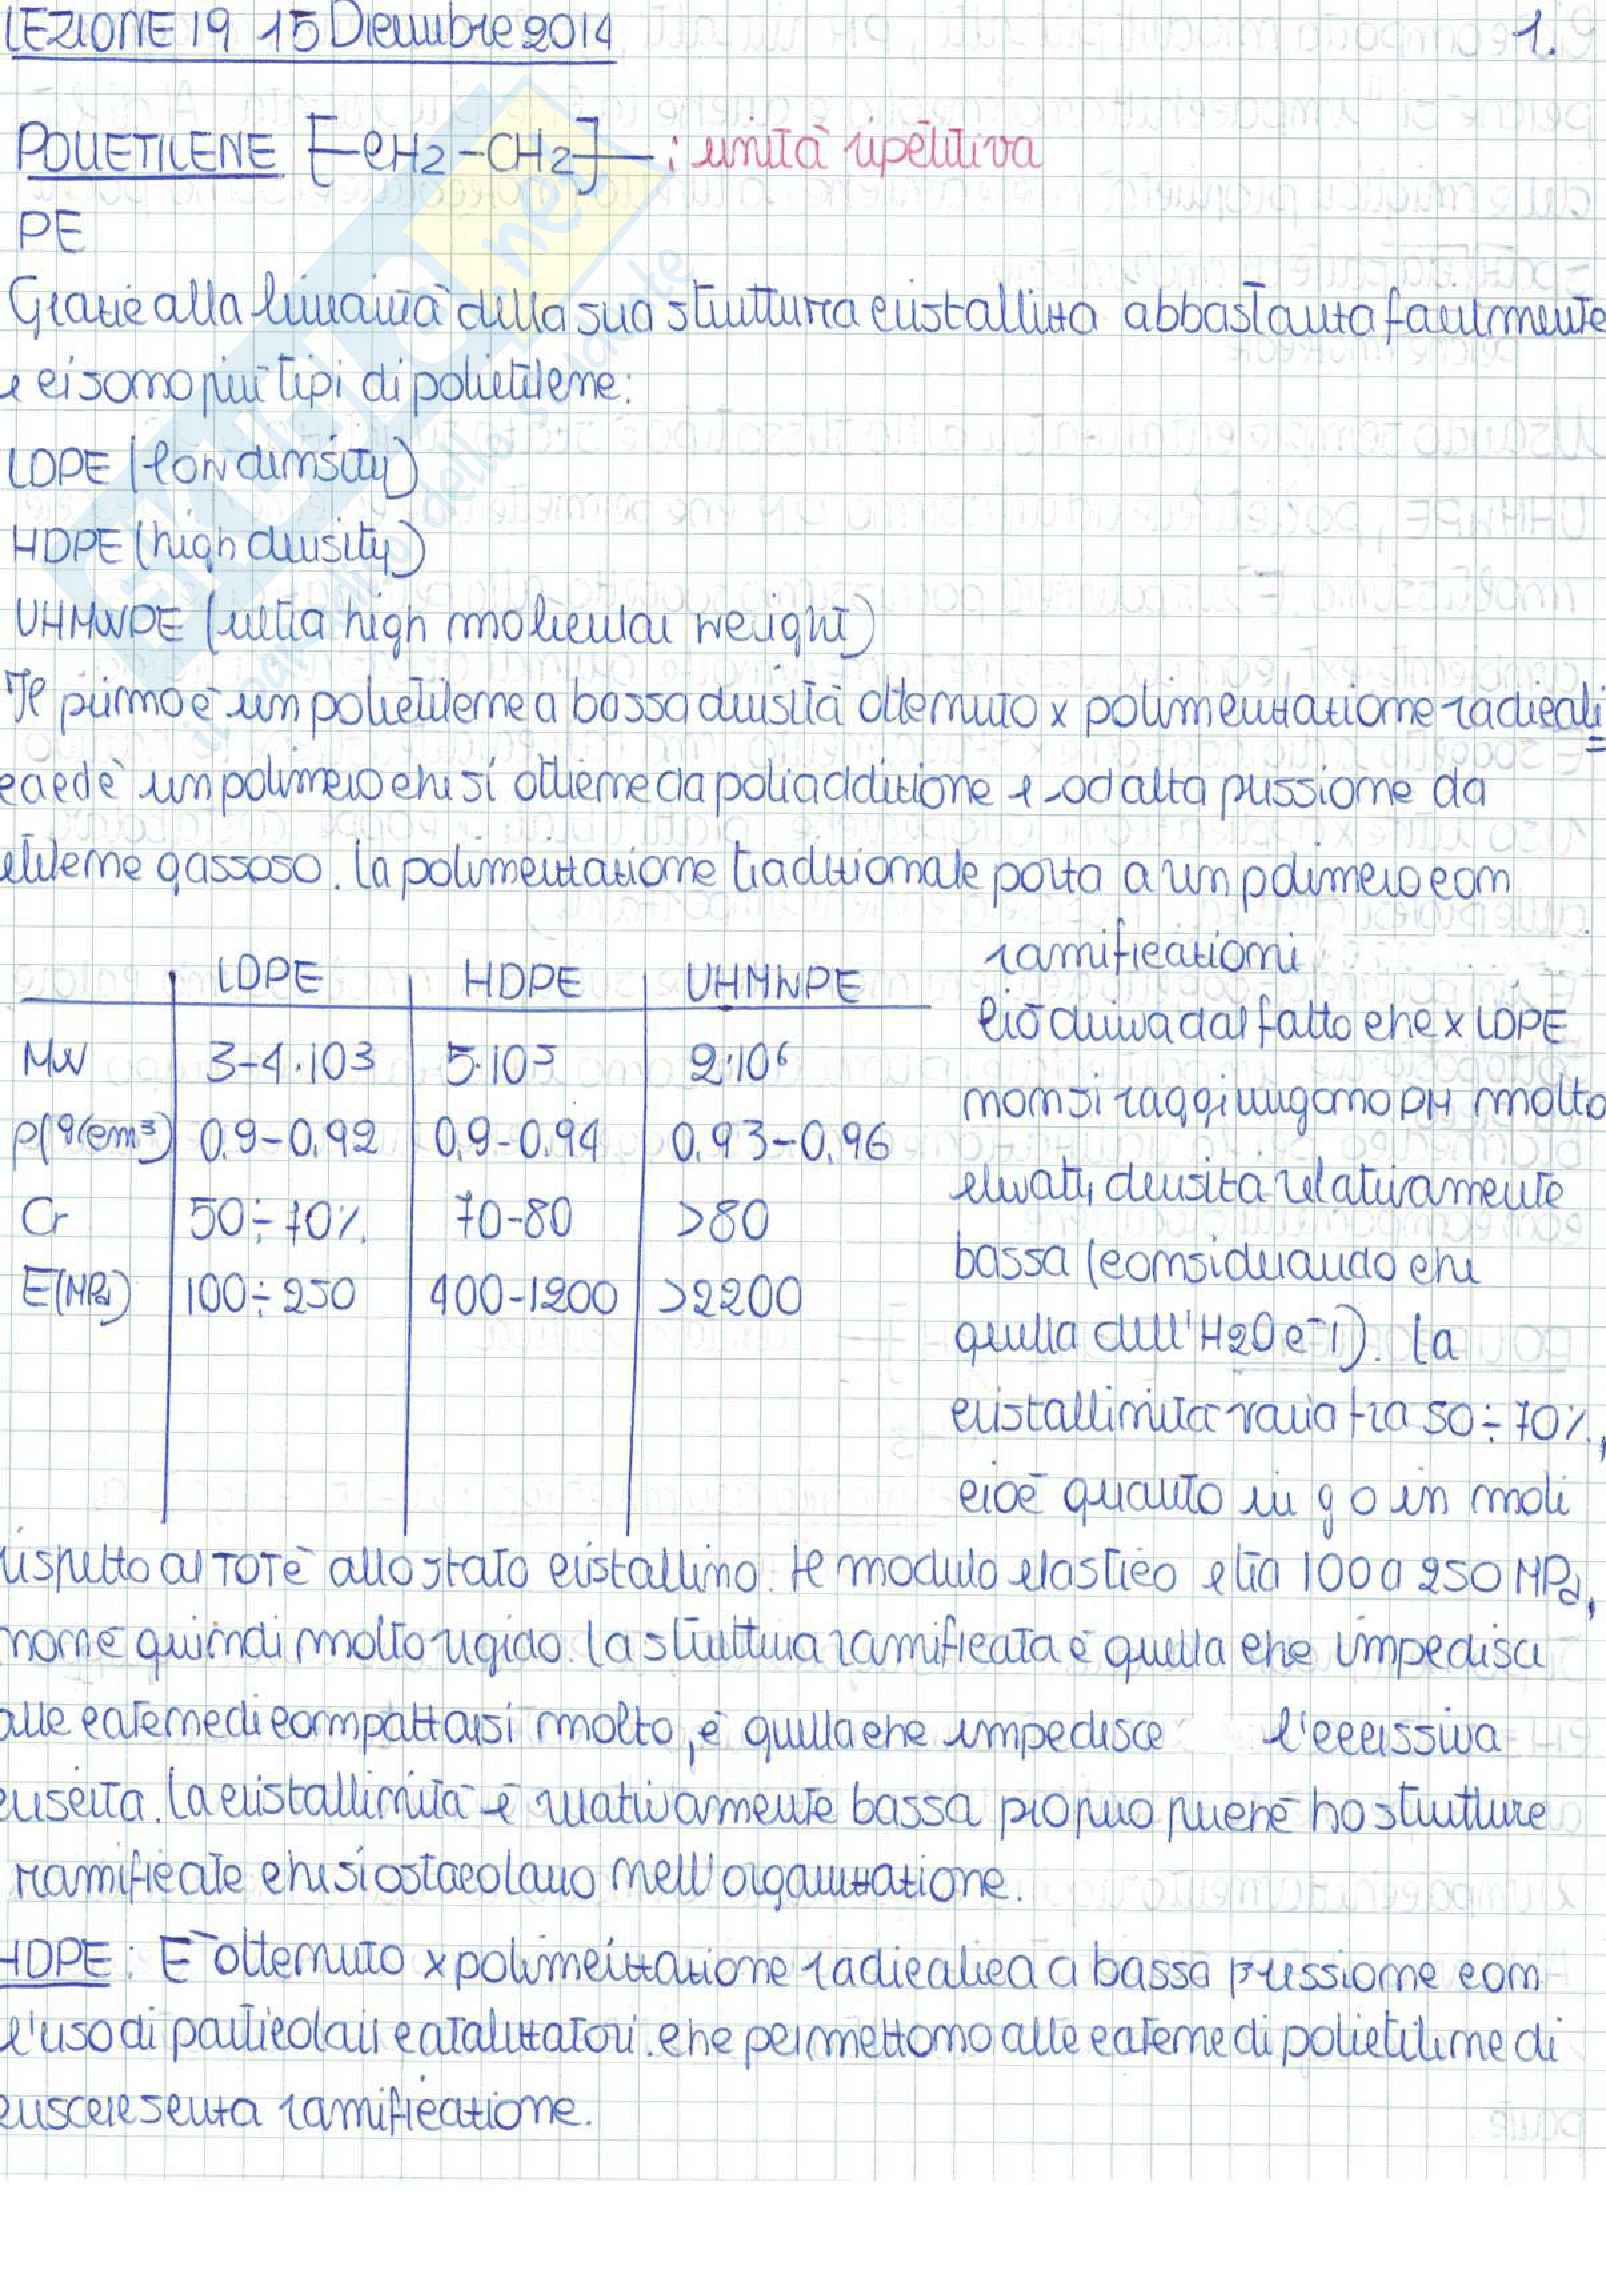 LEZIONE 19 15 Dicembre 2014 1.
POLIETILENE [-CH2-CH2]- : unità ripetitiva
PE
Grazie alla linearità della sua struttura cristallizza abbastanza facilmente
e ci sono più tipi di polietilene:
LDPE (low density)
HDPE (high density)
UHMWPE (ultra high molecular weight)
Il primo è un polietilene a bassa densità ottenuto x polimerizzazione radicali
ca ed è un polimero che si ottiene da poliaddizione e ad alta pressione da
etilene gassoso. La polimerizzazione tradizionale porta a un polimero con
ramificazioni
LDPE HDPE UHMWPE
Mw 3-4·103 5·10⁵ 2·10⁶
ρ(g/cm³) 0,9-0,92 0,9-0,94 0,93-0,96
Cr 50÷70% 70-80 >80
E(MPa) 100÷250 400-1200 >2200
Ciò deriva dal fatto che x LDPE
non si raggiungono PM molto
elevati, densità relativamente
bassa (considerando che
quella dell'H2O è ~1). La
cristallinità varia tra 50÷70%,
cioè quanto in g o in moli
rispetto al TOT è allo stato cristallino. Il modulo elastico è tra 100 a 250 MPa,
non è quindi molto rigido. La struttura ramificata è quella che impedisce
alle catene di compattarsi molto, è quella che impedisce l'eccessiva
crescita. La cristallinità è relativamente bassa proprio perché ho strutture
ramificate che si ostacolano nell'organizzazione.
HDPE: È ottenuto x polimerizzazione radicalica a bassa pressione con
l'uso di particolari catalizzatori che permettono alle catene di polietilene di
crescere senza ramificazione.